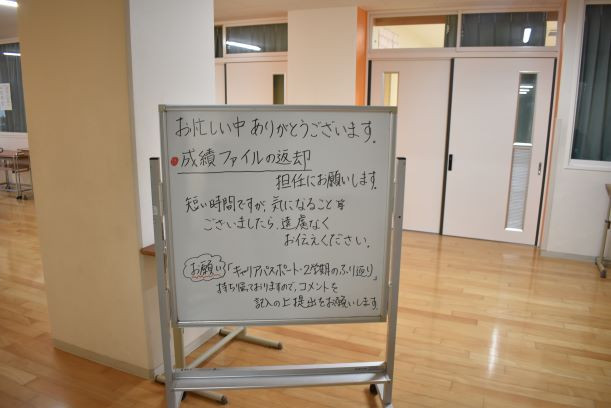 お忙しい中ありがとうございます。
成績ファイルの返却
担任にお願いします。
短い時間ですが、気になること等
ございましたら、遠慮なく
お伝えください。
お願い「キャリアパスポート・2学期のふり返り」
持ち帰っておりますので、コメントを
記入の上提出をお願いします。